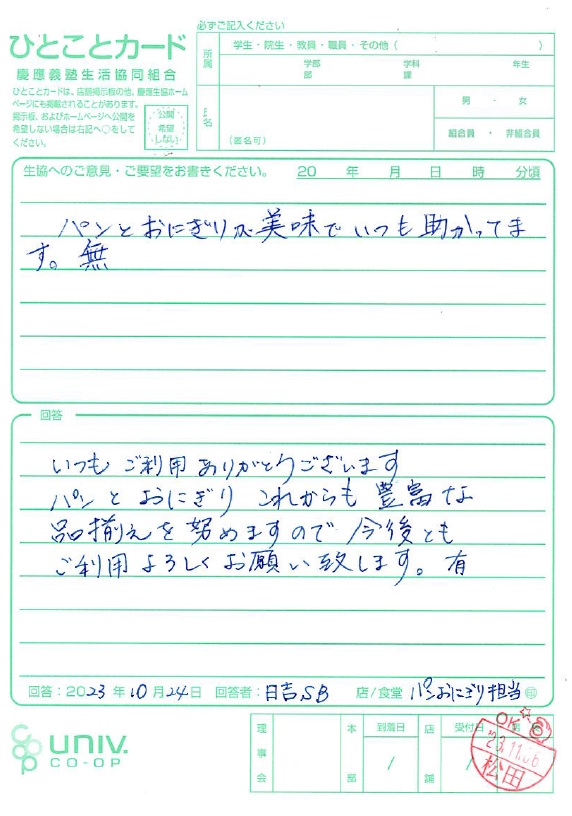 必ずご記入ください
ひとことカード
慶應義塾生活協同組合
ひとことカードは、店舗掲示板の他、慶應生協ホーム
ページにも掲載されることがあります。
掲示板、およびホームページへ公開を
希望しない場合は右記へ○をして
ください。
公開
希望
しない
所属
学生・院生・教員・職員・その他（ ）
学部 学科 年生
部 課
氏名
（匿名可）
男 ・ 女
組合員 ・ 非組合員
生協へのご意見・ご要望をお書きください。 20 年 月 日 時 分頃
パンとおにぎりが美味でいつも助かってま
す。無
回答
いつもご利用ありがとうございます
パンとおにぎりこれからも豊富な
品揃えを努めますので今後とも
ご利用よろしくお願い致します。有
回答：2023年10月24日 回答者：日吉SB 店/食堂 パンおにぎり担当 印
univ.
CO-OP
理事会
本部
到着日
/
店舗
受付日
/
OK☆
'23.11.06
松田